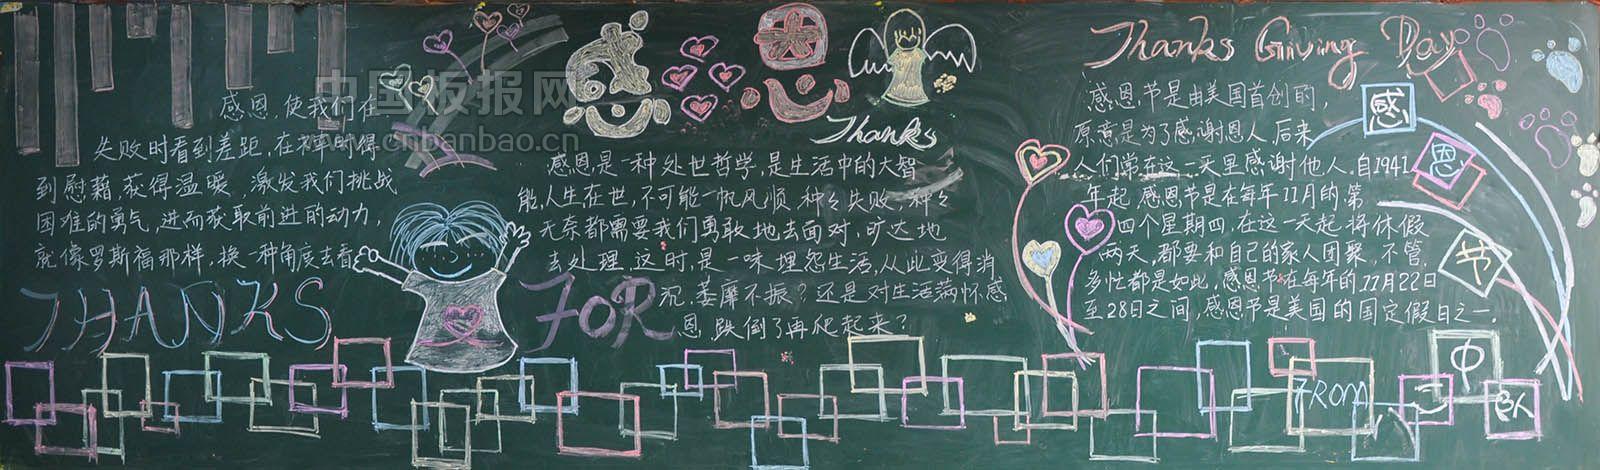 中国板报网
www.cnbanbao.cn
感恩,使我们在
失败时看到差距,在
到慰藉,获得温暖,激发我们挑战
困难的勇气,进而获取前进的动力,
就像罗斯福那样,换一种角度去看
THANKS
感恩
Thanks
感恩是一种处世哲学,是生活中的大智
能,人生在世,不可能一帆风顺,种々失败,种々
无奈都需要我们勇敢地去面对,旷达地
去处理.这时,是一味埋怨生活,从此变得消
沉,萎靡不振?还是对生活满怀感
恩,跌倒了再爬起来?
FOR
Thanks Giving Day
感恩节是由美国首创的,
原意是为了感谢恩人,后来
人们常在这一天里感谢他人.自1941
年起,感恩节是在每年11月的第
四个星期四,在这一天起将休假
两天,都要和自己的家人团聚,不管
多忙都是如此,感恩节在每年的11月22日
至28日之间,感恩节是美国的国定假日之一.
感
恩
节
FROM
中